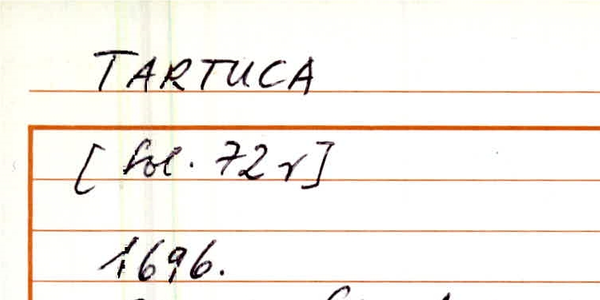 TARTUCA
[fol. 72r]
1696.